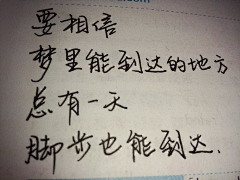 要相倍
梦里能到达的地方
总有一天
脚步也能到达.